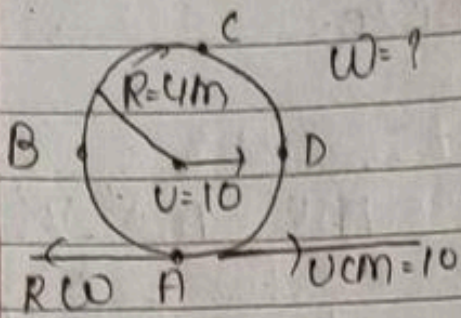 C
W=?
R=4m
B
D
U=10
RW A
UCM=10